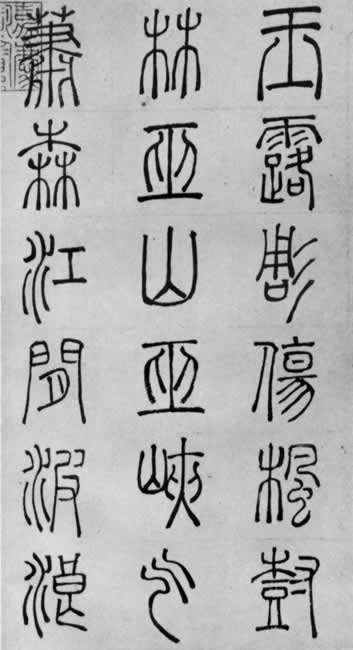 玉露彫傷楓尌
林巫山巫峽气
蕭森江間波浪